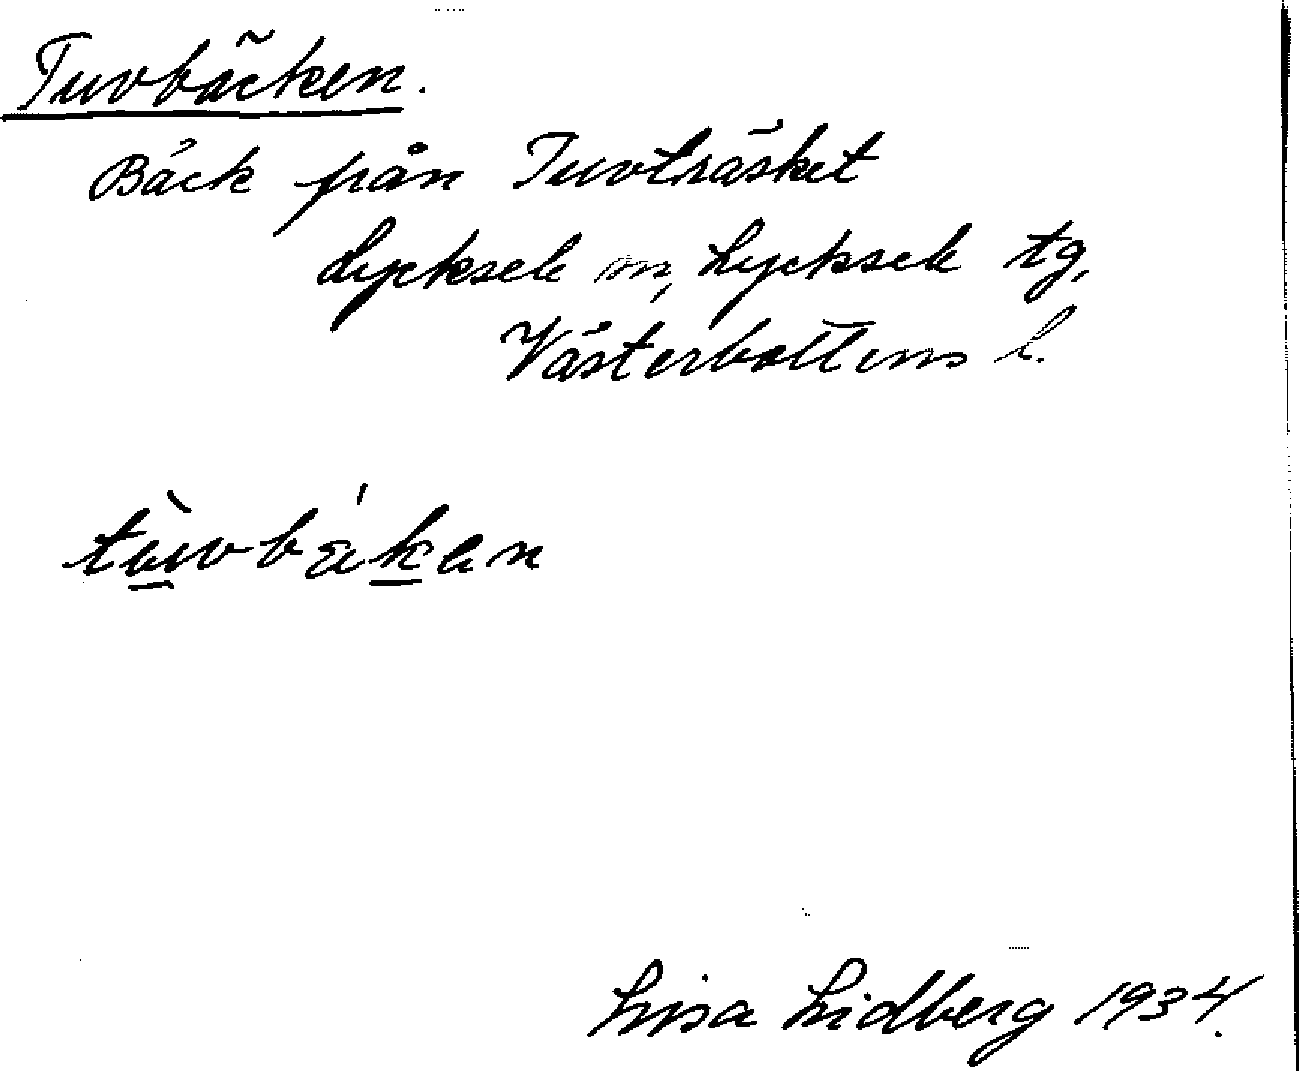 Tuvbäcken.
Bäck från Tuvträsket
Lycksele sn, Lycksele tg,
Västerbottens l.
tùvbä́ken
Lisa Lidberg 1934.